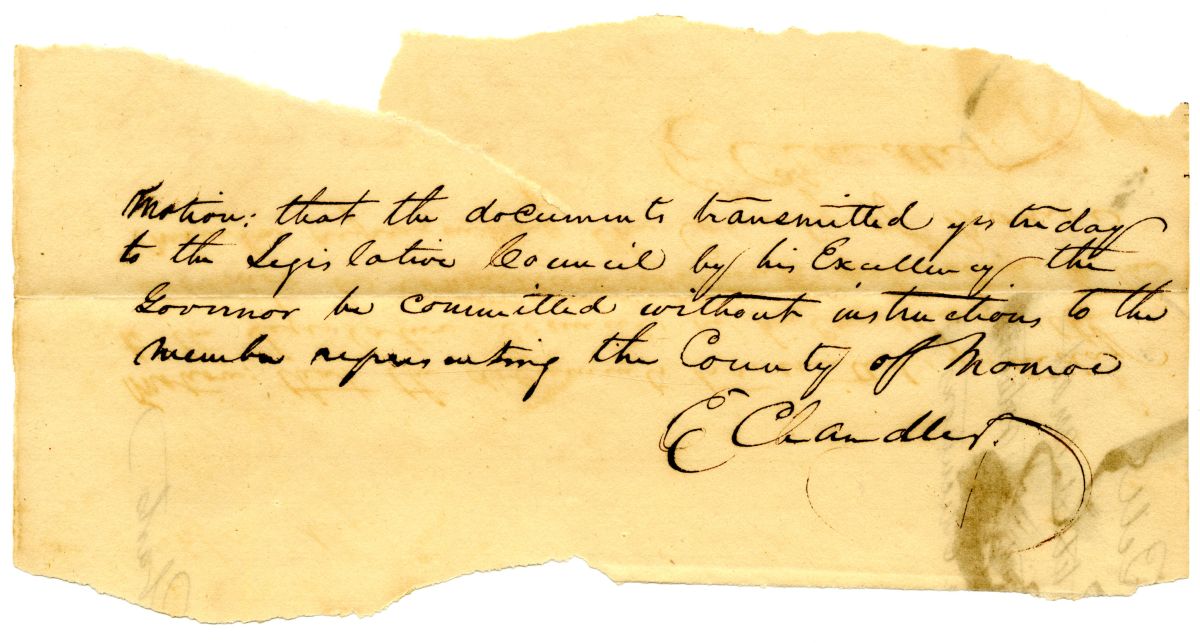 Motion: that the documents transmitted yesterday
to the Legislative Council by his Excellency the
Governor be committed without instructions to the
member representing the County off Monroe
E Chandler.